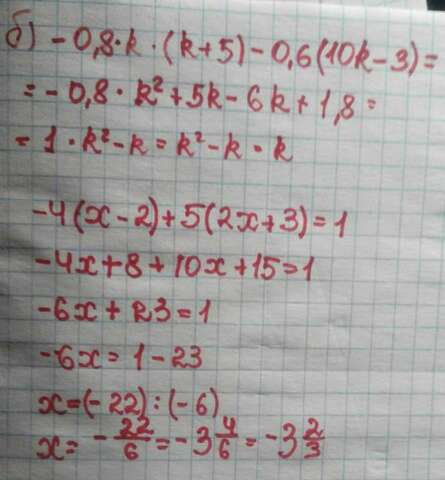 б) - 0,8·k·(k+5) - 0,6(10k-3)=
= - 0,8·k²+5k-6k+1,8=
= 1·k²-k=k²-k=k
-4(x-2)+5(2x+3)=1
-4x+8+10x+15=1
-6x+23=1
-6x=1-23
x=(-22):(-6)
x= -22/6=-3 4/6=-3 2/3